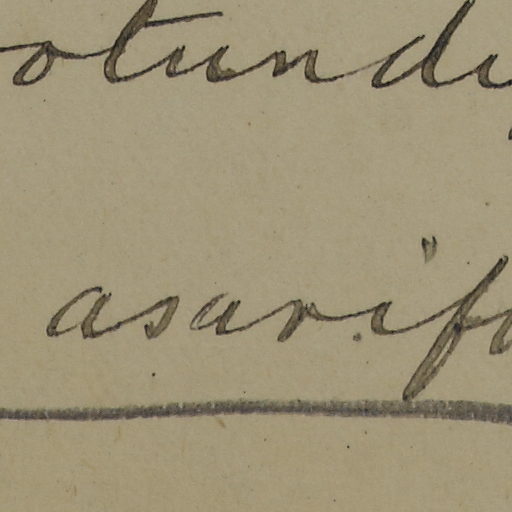 otundi
asarifo